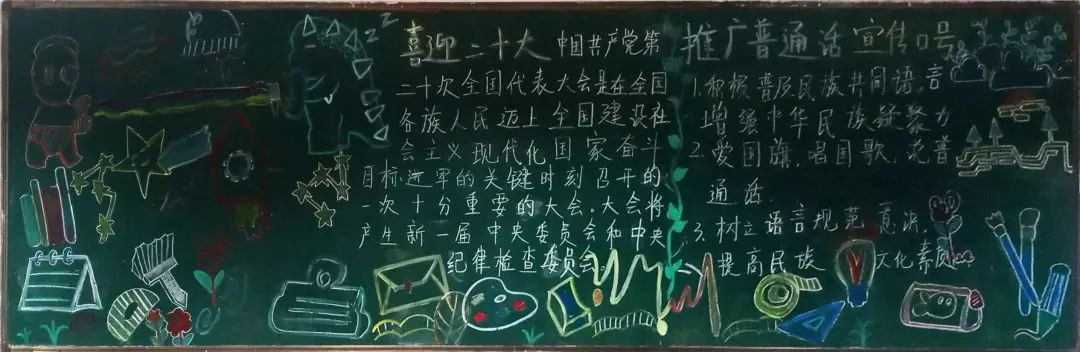 喜迎二十大 中国共产党第
二十次全国代表大会是在全国
各族人民迈上全国建设社
会主义现代化国家奋斗
目标进军的关键时刻召开的
一次十分重要的大会。大会将
产生新一届中央委员会和中央
纪律检查委员会。
推广普通话宣传口号
1.积极普及民族共同语言
增强中华民族凝聚力
2.爱国旗,唱国歌,说普
通话.
3.树立语言规范意识,
提高民族文化素质.